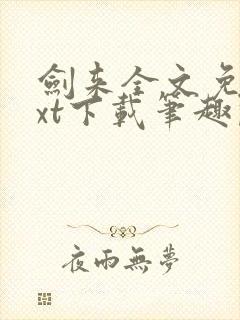 劍来全文免
xt下載筆趣
夜雨無夢